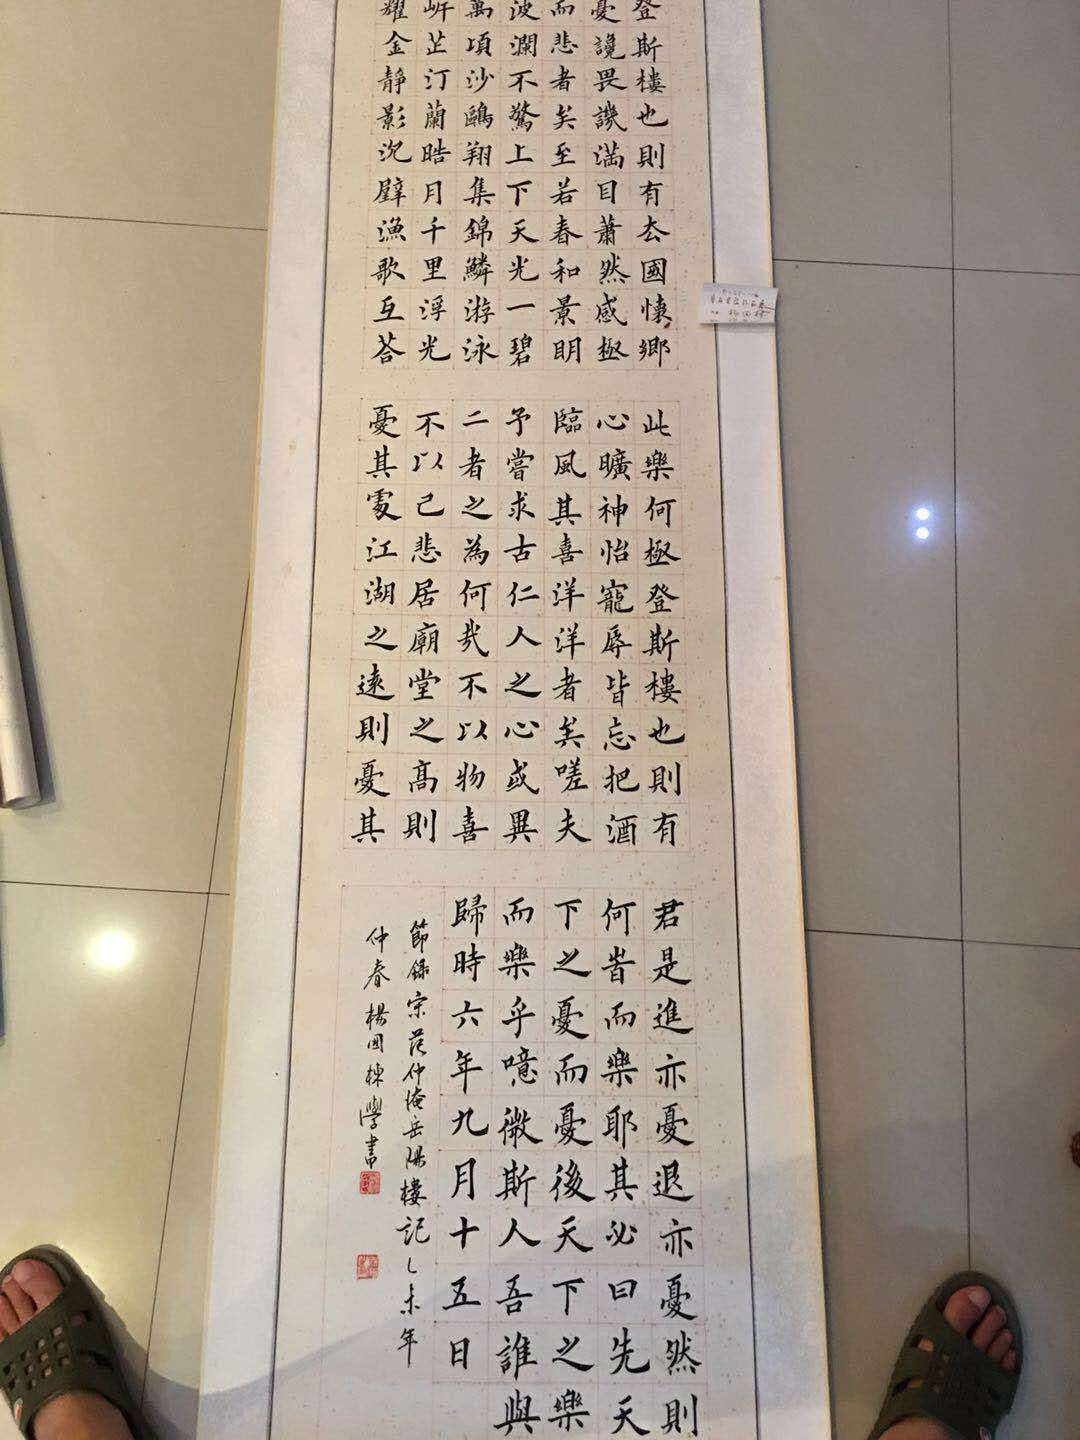 登斯樓也則有去國懷鄉
憂讒畏譏滿目蕭然感極
而悲者矣至若春和景明
波瀾不驚上下天光一碧
萬頃沙鷗翔集錦鱗游泳
岸芷汀蘭晧月千里浮光
耀金靜影沉璧漁歌互荅
此樂何極登斯樓也則有
心曠神怡寵辱皆忘把酒
臨風其喜洋洋者矣嗟夫
予嘗求古仁人之心或異
二者之為何哉不以物喜
不以己悲居廟堂之高則
憂其處江湖之遠則憂其
君是進亦憂退亦憂然則
何旹而樂耶其必曰先天
下之憂而憂後天下之樂
而樂乎噫微斯人吾誰與
歸時六年九月十五日
節錄宋范仲淹岳陽樓記乙未年
仲春楊囯棟學書